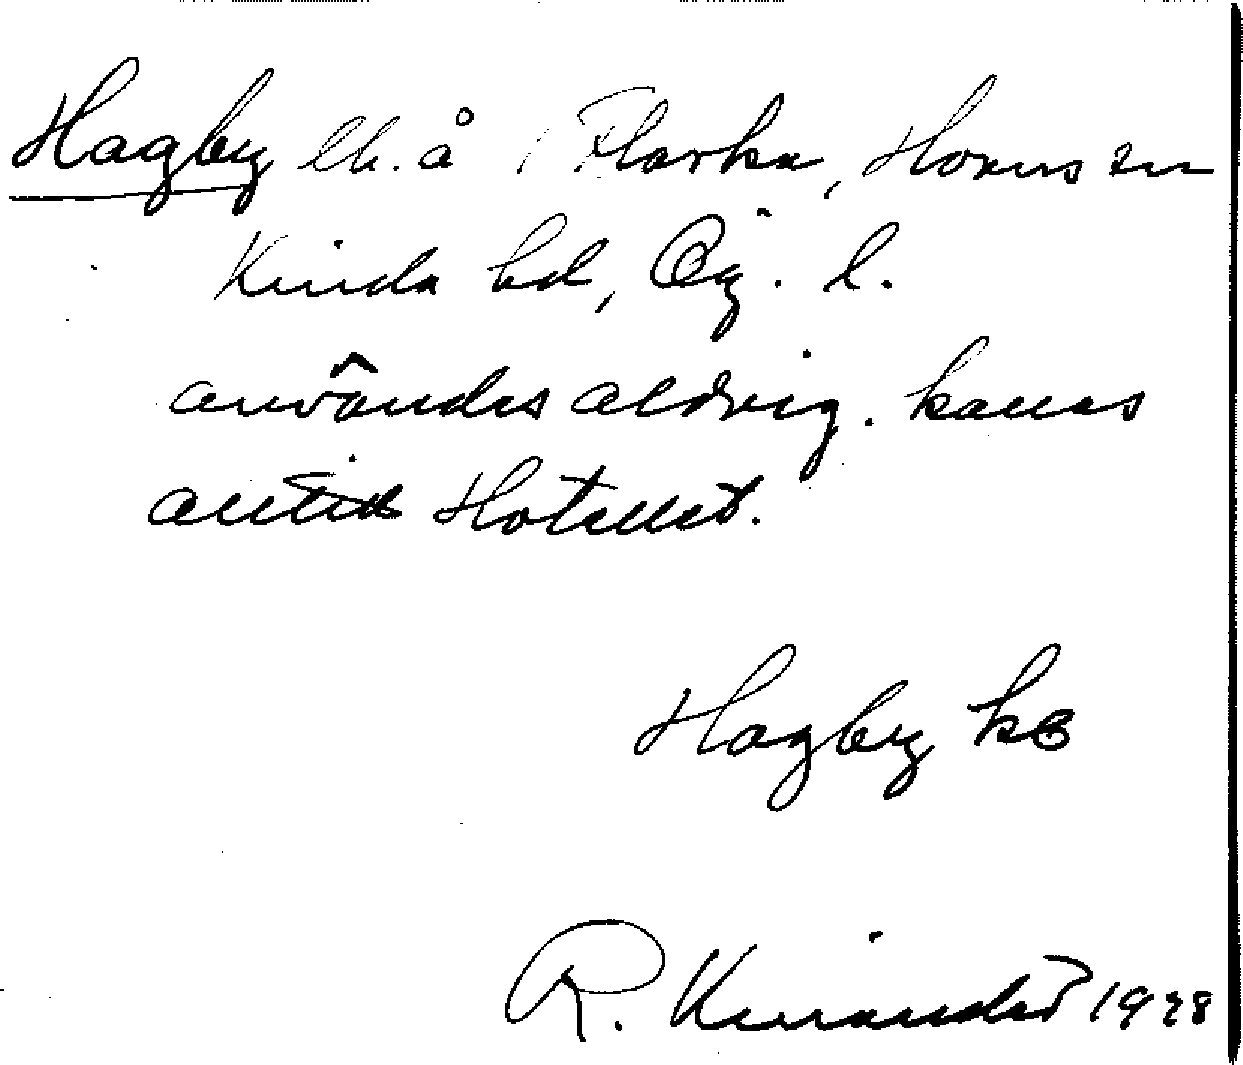 Hagby lh. å Flarka, Horns sn
Kinda hd, Ög. l.
användes aldrig. kallas
alltid Hotellet.
Hagby kb
R. Kinander 1928